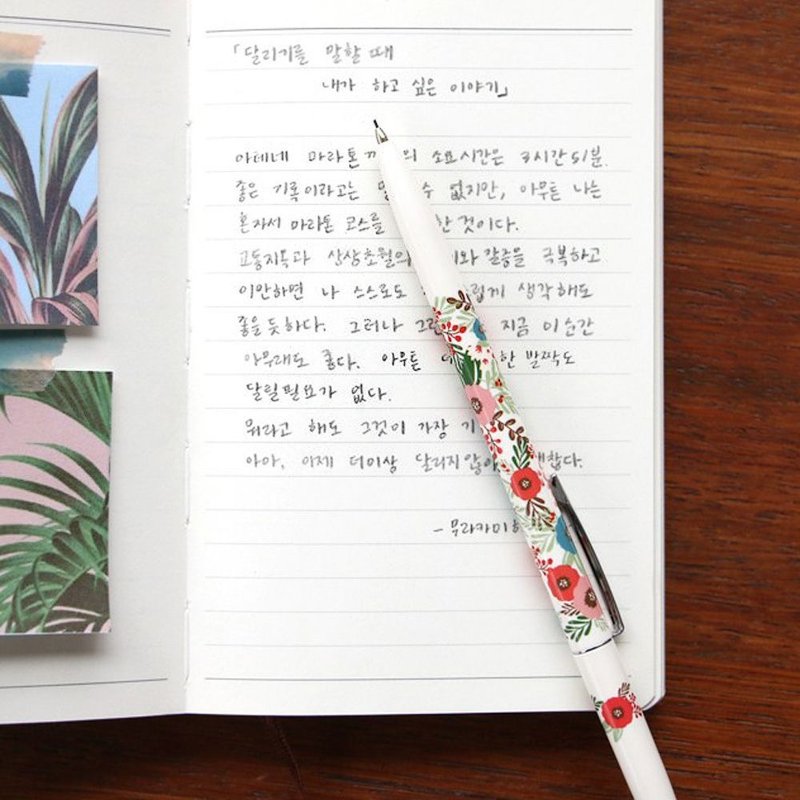 「달리기를 말할 때
내가 하고 싶은 이야기」
아테네 마라톤까 의 소요시간은 3시간 51분.
좋은 기록이라고는 수 없지만, 아무튼 나는
혼자서 마라톤 코스를 한 것이다.
교통지옥과 상상초월의 와 갈증을 극복하고
이만하면 나 스스로도 럽게 생각해도
좋을 듯하다. 그러나 지금 이 순간
아무래도 좋다. 아무튼 한 발짝도
달릴 필요가 없다.
뭐라고 해도 그것이 가장 기
아아, 이제 더이상 달리지 않아
- 무라카미